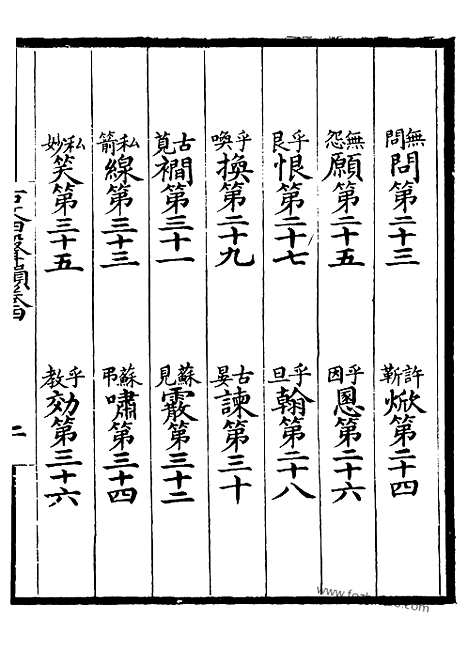 無問問第二十三　許靳焮第二十四
無怨願第二十五　乎困慁第二十六
乎艮恨第二十七　乎旦翰第二十八
乎喚換第二十九　古晏諫第三十
古莧襇第三十一　蘇見霰第三十二
私箭線第三十三　蘇弔嘯第三十四
私妙笑第三十五　乎教効第三十六
古文四聲韻卷四　二